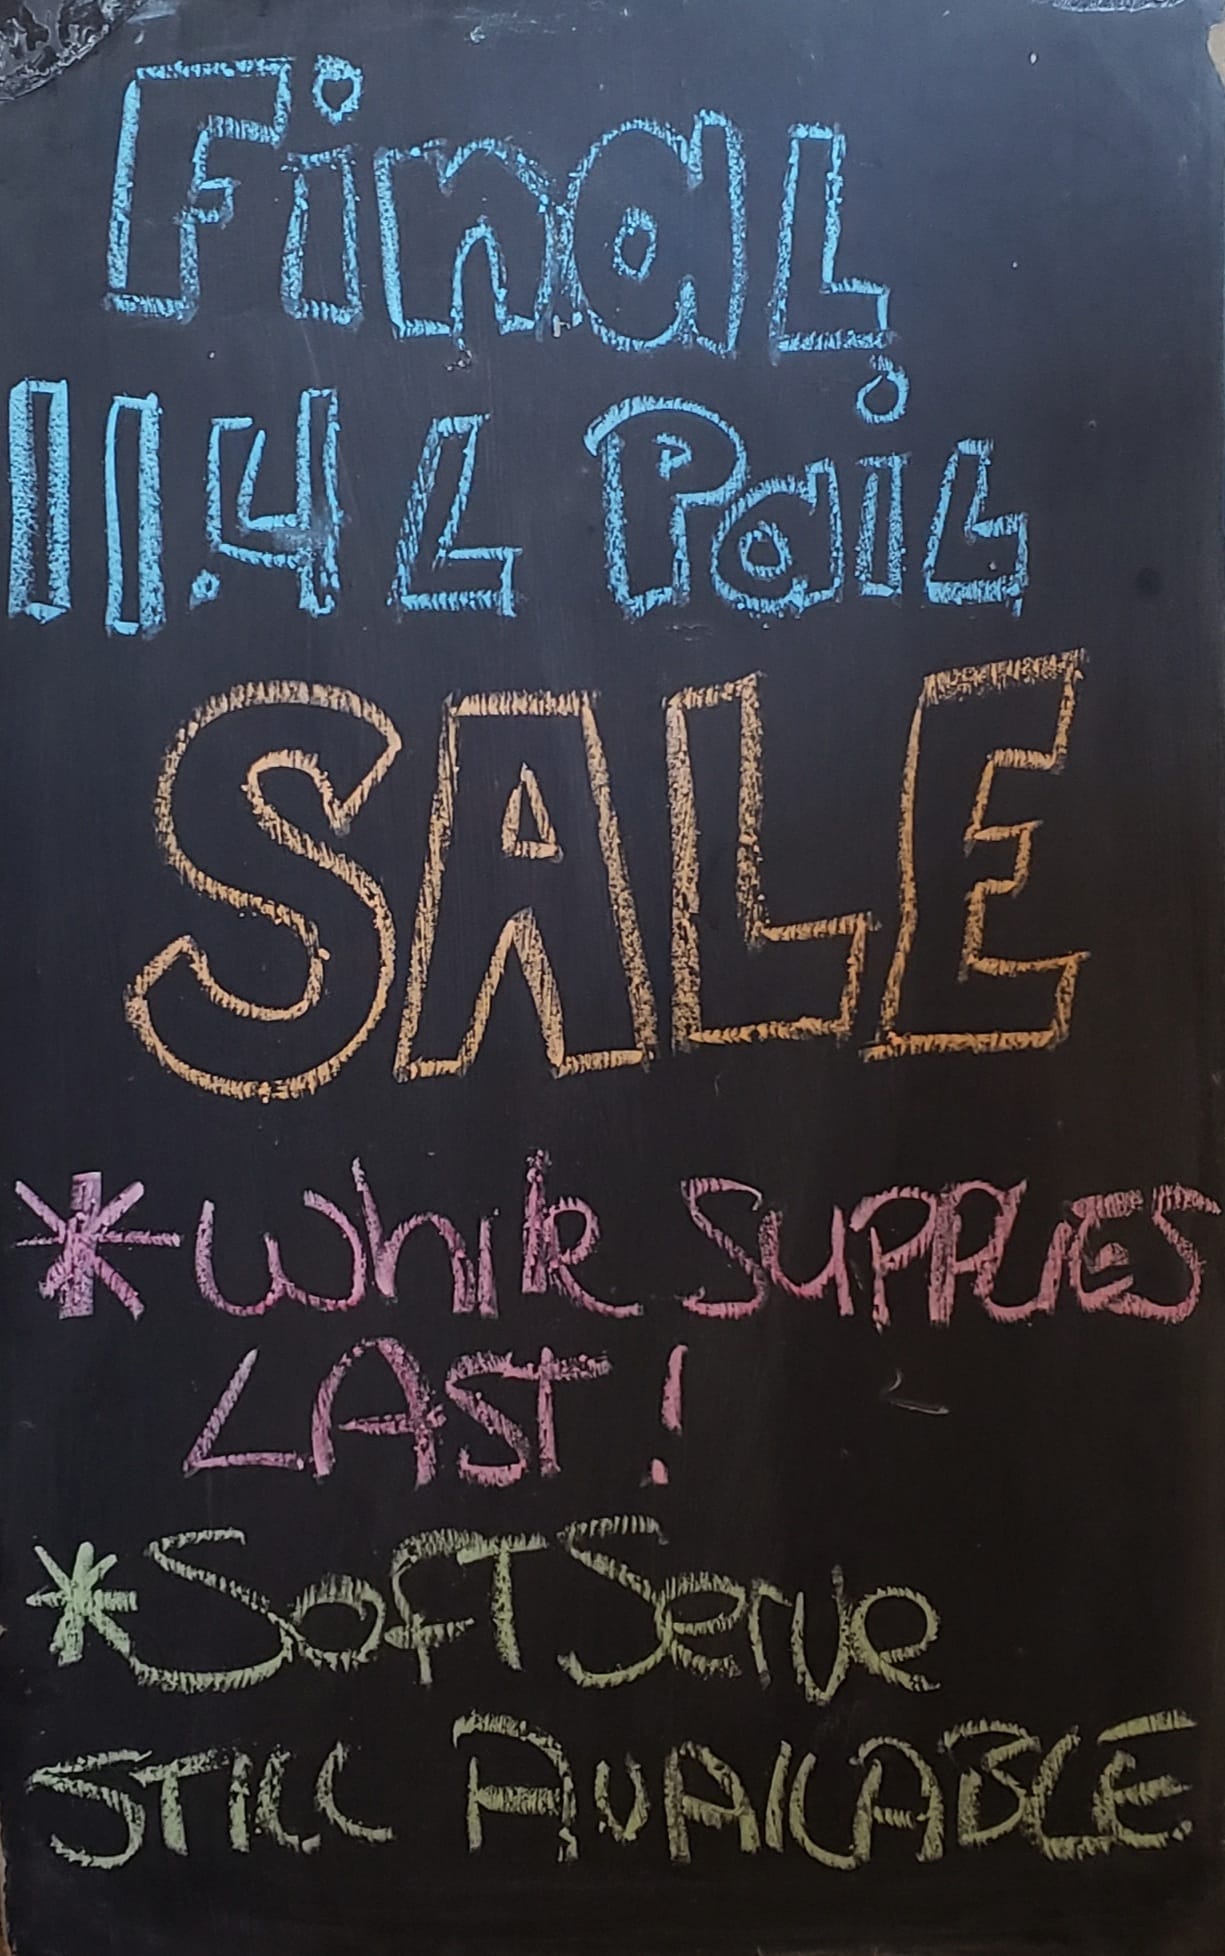 Final
11.4L Pail
SALE
*While SUPPLIES
LAST!
*Soft Serve
STILL AVAILABLE